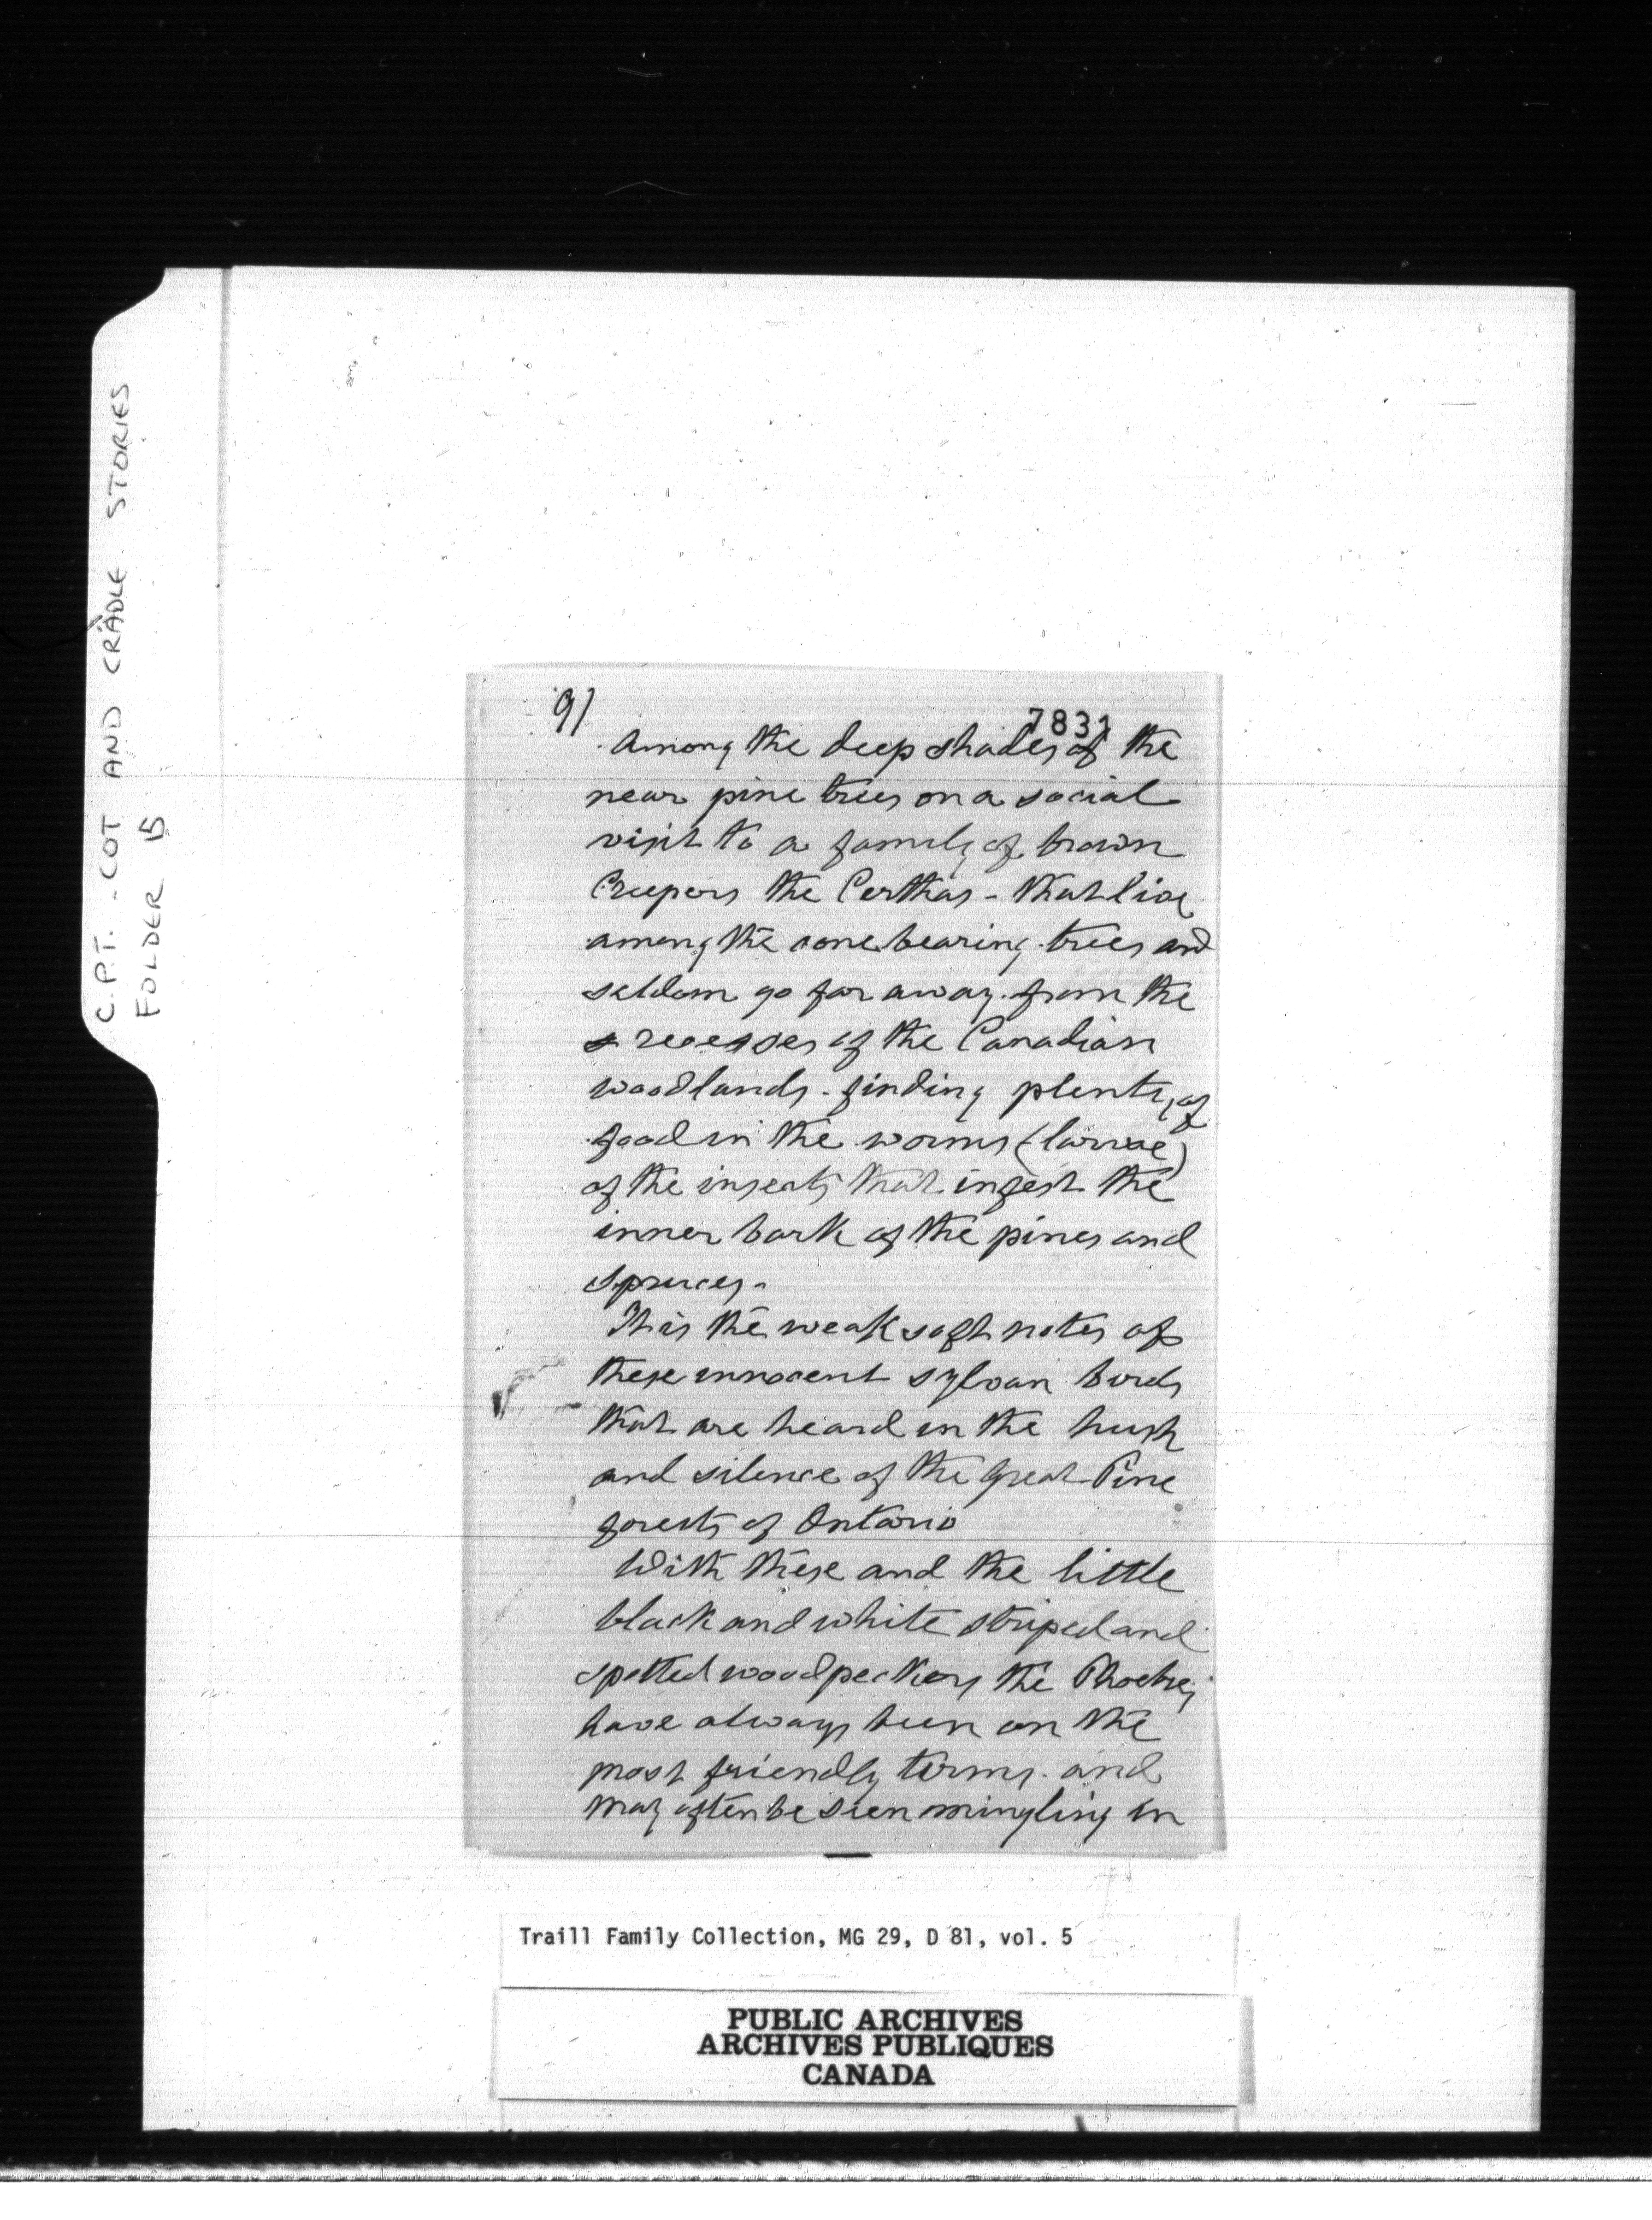 C.P.T. - COT AND CRADLE STORIES
FOLDER 15
9)
7831
Among the deep shades of the
near pine trees on a social
visit to a family of brown
Creepers the Certhas - that live
among the cone bearing trees and
seldom go far away from the
recesses of the Canadian
woodlands - finding plenty of
food in the worms (larvae)
of the insects that infest the
inner bark of the pines and
spruces -
It is the weak soft notes of
these innocent sylvan birds
that are heard in the hush
and silence of the great Pine
forests of Ontario
With these and the little
black and white striped and
spotted woodpeckers the Phoebes
have always been on the
most friendly terms - and
may often be seen mingling in
Traill Family Collection, MG 29, D 81, vol. 5
PUBLIC ARCHIVES
ARCHIVES PUBLIQUES
CANADA